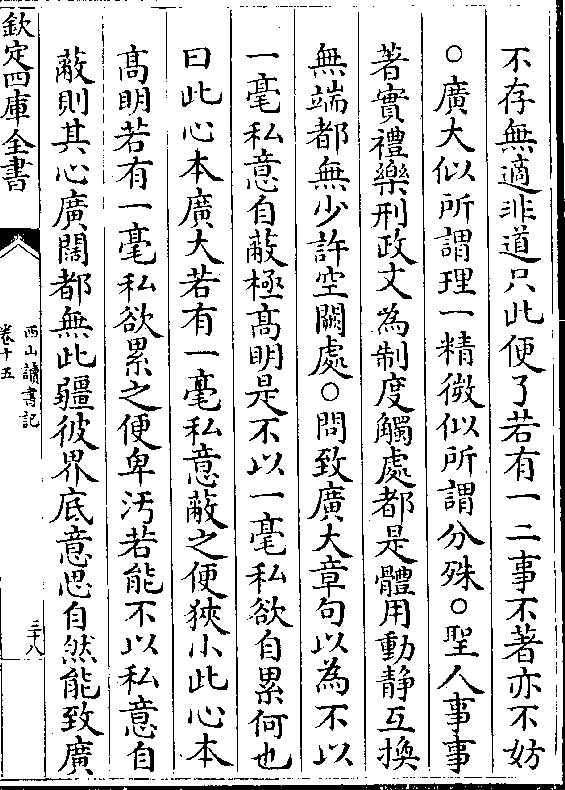 不存無適非道只此便了若有一二事不著亦不妨
○廣大似所謂理一精微似所謂分殊○聖人事事
著實禮樂刑政文為制度觸處都是體用動静互換
無端都無少許空闕處○問致廣大章句以為不以
一毫私意自蔽極髙明是不以一毫私欲自累何也
曰此心本廣大若有一毫私意蔽之便狹小此心本
髙明若有一毫私欲累之便卑汚若能不以私意自
蔽則其心廣闊都無此疆彼界底意思自然能致廣
欽定四庫全書
西山讀書記
卷十五
三十八